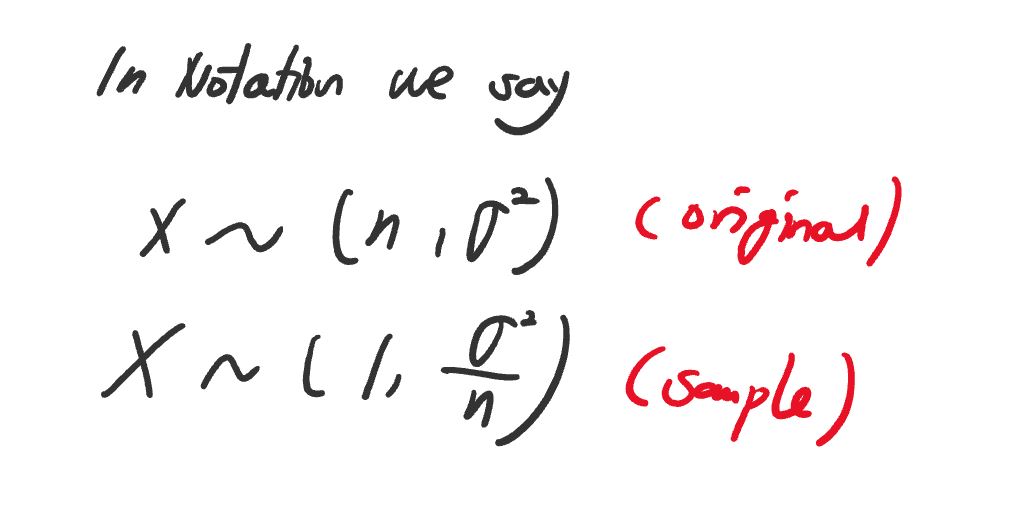 In Notation we say
X ~ (n, σ²) (original)
X ~ (1, σ²/n) (sample)